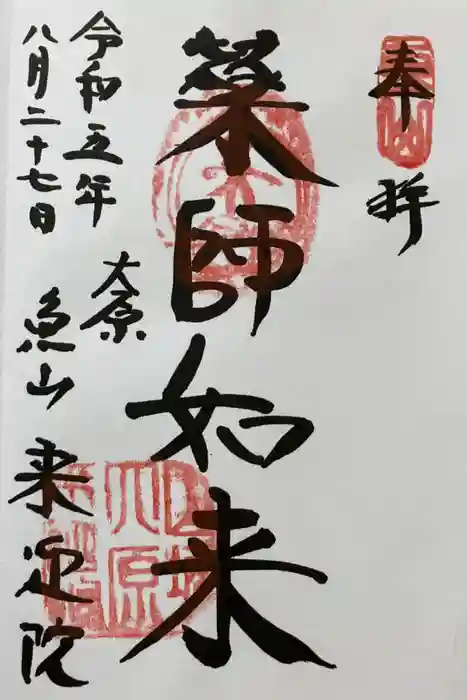 奉拝
薬師如来
大原
魚山
来迎院
令和五年
八月二十七日